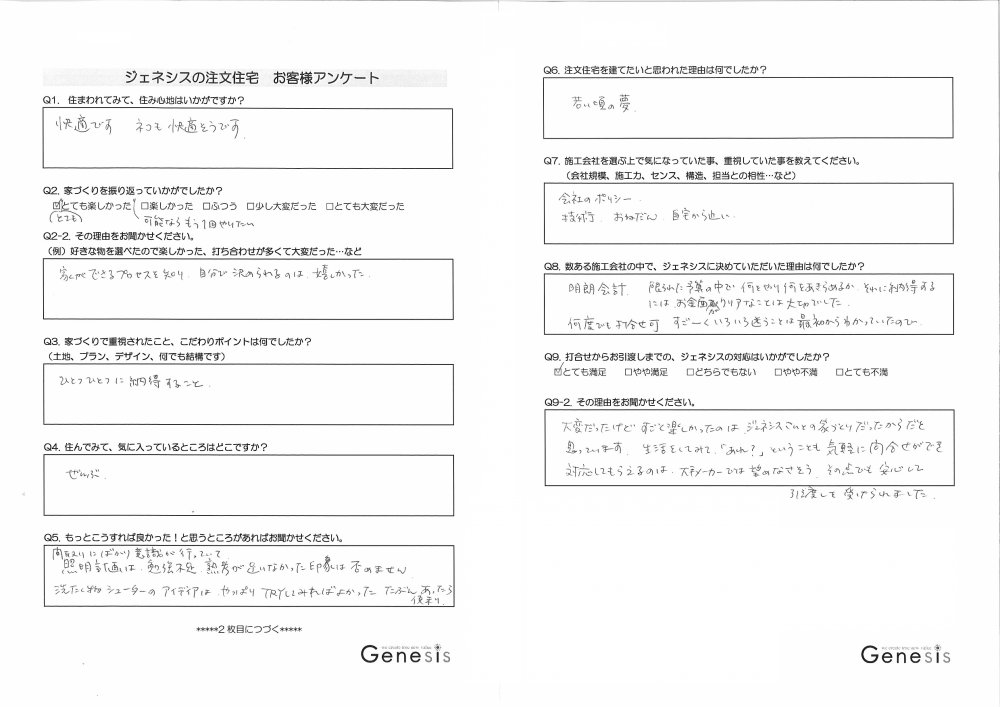 ジェネシスの注文住宅　お客様アンケート
Q1. 住まわれてみて、住み心地はいかがですか?
快適です　ネコも快適そうです.
Q2. 家づくりを振り返っていかがでしたか?
☑とても楽しかった　□楽しかった　□ふつう　□少し大変だった　□とても大変だった
(とても)　可能ならもう1回やりたい
Q2-2. その理由をお聞かせください。
(例) 好きな物を選べたので楽しかった、打ち合わせが多くて大変だった…など
家ができるプロセスを知り、自分で決められるのは、嬉しかった.
Q3. 家づくりで重視されたこと、こだわりポイントは何でしたか?
(土地、プラン、デザイン、何でも結構です)
ひとつひとつに納得すること.
Q4. 住んでみて、気に入っているところはどこですか?
ぜんぶ.
Q5. もっとこうすれば良かった!と思うところがあればお聞かせください。
間取りにばかり意識が行っていて
照明計画は、勉強不足 熟考が足りなかった印象は否めません
洗たく物シューターのアイディアは やっぱり TRYしてみればよかった たぶんあったら
便利.
*****2枚目につづく*****
Genesis
Q6. 注文住宅を建てたいと思われた理由は何でしたか?
若い頃の夢.
Q7. 施工会社を選ぶ上で気になっていた事、重視していた事を教えてください。
(会社規模、施工力、センス、構造、担当との相性…など)
会社のポリシー.
技術、おねだん、自宅から近い.
Q8. 数ある施工会社の中で、ジェネシスに決めていただいた理由は何でしたか?
明朗会計.　限られた予算の中で何をやり何をあきらめるか、それに納得する
にはお金面がクリアなことは大切でした.
何度でも打合せ可　すごーくいろいろ迷うことは最初からわかっていたので.
Q9. 打合せからお引渡しまでの、ジェネシスの対応はいかがでしたか?
☑とても満足　□やや満足　□どちらでもない　□やや不満　□とても不満
Q9-2. その理由をお聞かせください。
大変だったけど すごく楽しかったのは ジェネシスさんとの家づくりだったからだと
思っています. 生活をしてみて、「あれ?」ということも気軽に問合せができ
対応してもらえるのは、大手メーカーでは望めなさそう. その点でも安心して
引渡しを受けられました.
Genesis